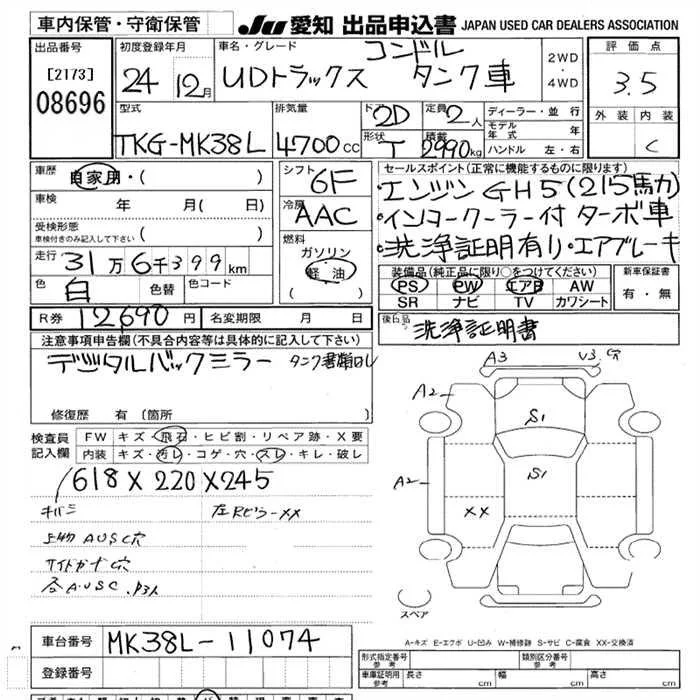 車内保管・守衛保管 JU 愛知 出品申込書 JAPAN USED CAR DEALERS ASSOCIATION
出品番号 初度登録年月 車名・グレード コンドル 2WD 評価点
[2173] 24 12月 UDトラックス タンク車 ・4WD 3.5
08696 型式 排気量 ドア 2D 定員 2人 ディーラー・並行 外装 内装
TKG-MK38L 4700cc 形状 T 積載 2990kg モデル年式 年 C
ハンドル 左・右
車歴 自家用・( ) シフト 6F セールスポイント(正常に機能するものに限ります)
車検 年 月( 日) 冷房 AAC ・エンジン GH5(215馬力)
受検形態 ・インタークーラー付ターボ車
車検付きのみ記入して下さい ( ) 燃料 ガソリン ・洗浄証明有り・エアブレーキ
走行 31万6千399km 軽油 装備品(純正品に限り○をつけてください) 新車保証書
色 白 色替 色コード ( ) PS PW エアB AW 有・無
SR ナビ TV カワシート
R券 12690円 名変期限 月 日 後日品 洗浄証明書
注意事項申告欄(不具合内容等は具体的に記入して下さい)
デジタルバックミラー タンク書類無し
修復歴 有 〔箇所 〕
検査員 FW キズ・飛石・ヒビ割・リペア跡・X要
記入欄 内装 キズ・汚レ・コゲ・穴・スレ・キレ・破レ
618×220×245
キバミ 左Rピラーxx
上物 AUSC穴
サイドガード穴
各A.U.S.C.
A3 U3.穴
A2 S1
A2 S1
XX
スペア
A-キズ E-エクボ U-凹み W-補修跡 S-サビ C-腐食 XX-交換済
車台番号 MK38L-11074 形式指定番号 参考 類別区分番号 参考
登録番号 車庫証明用 参考 長さ cm 幅 cm 高さ cm